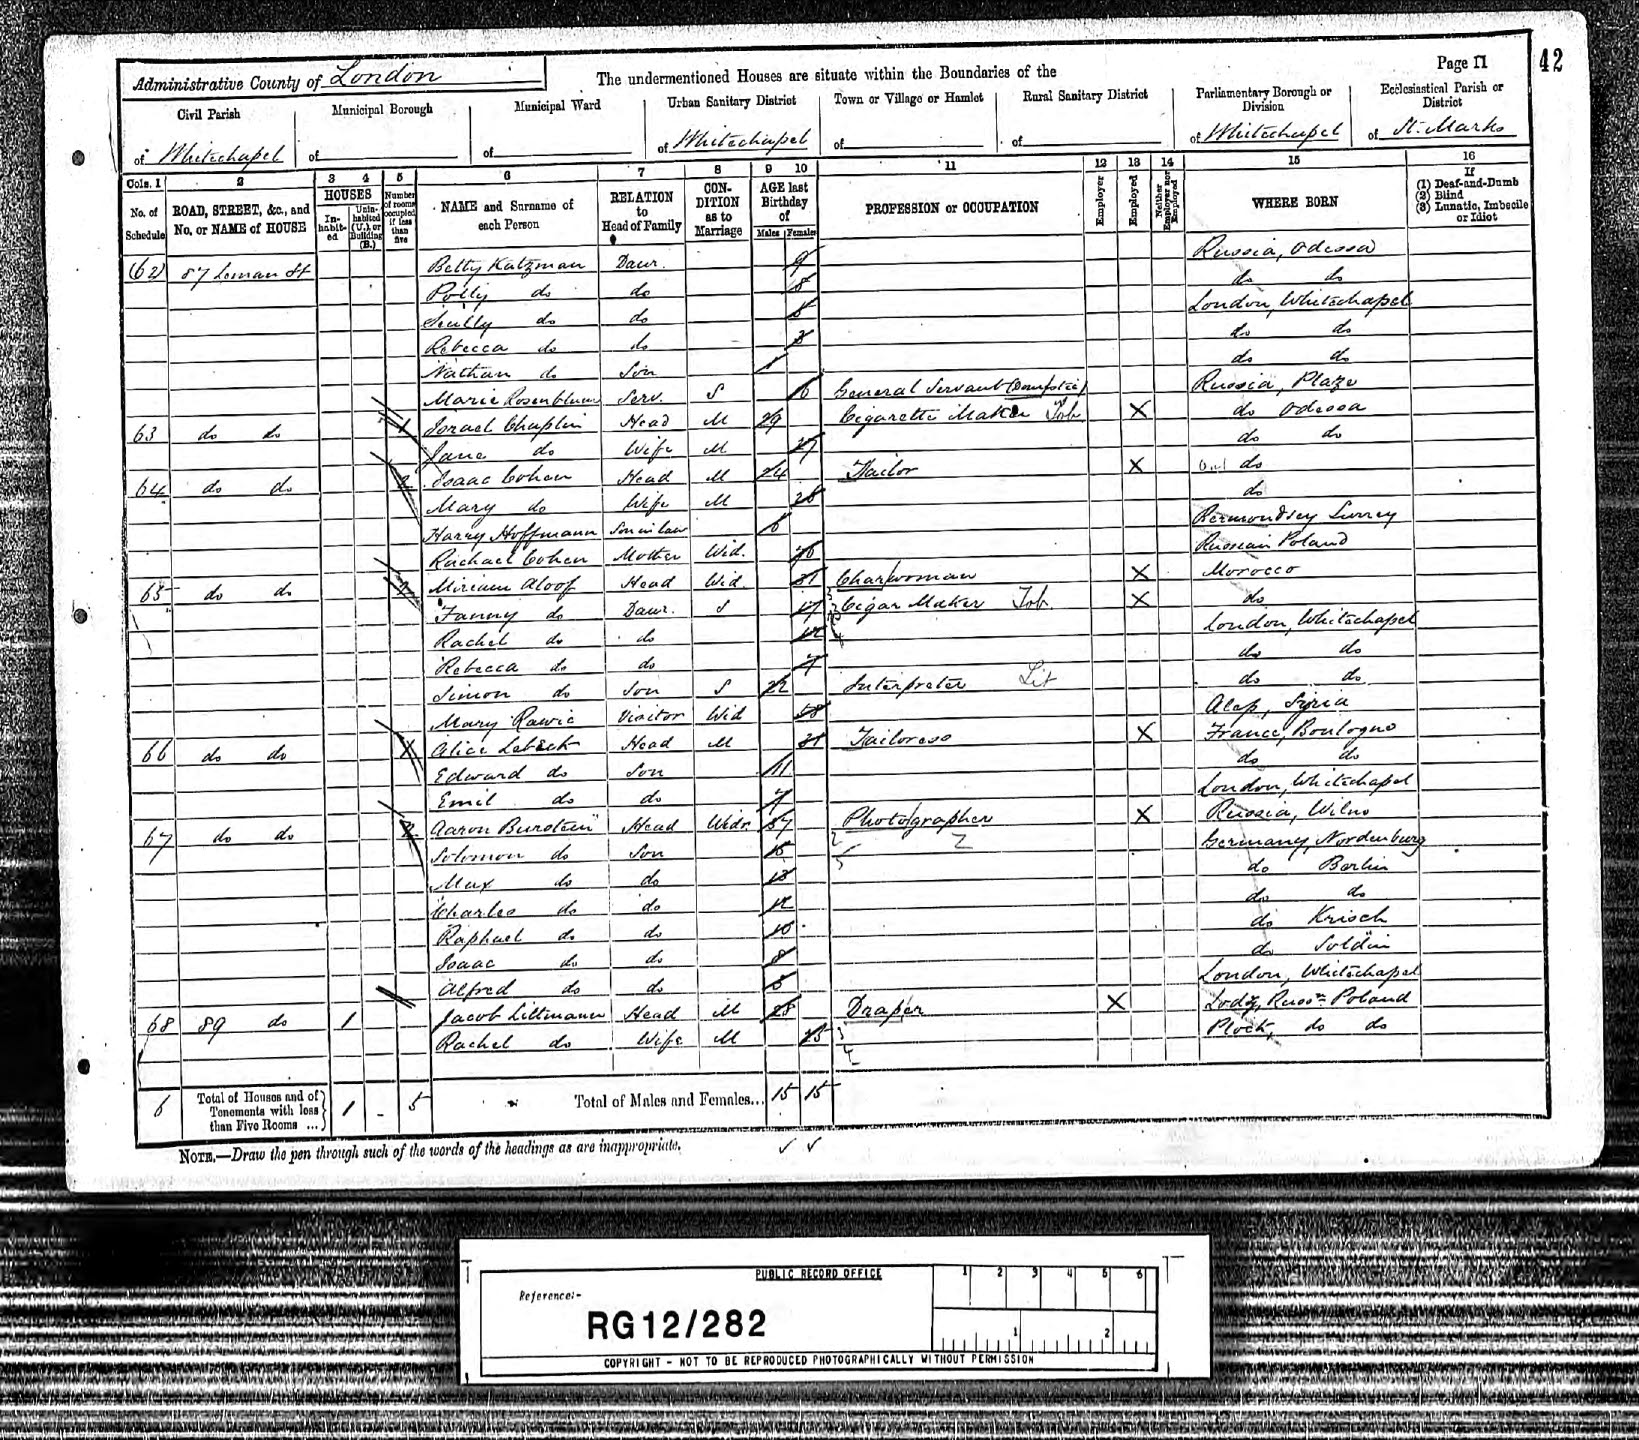 42
Page 11
Administrative County of London
The undermentioned Houses are situate within the Boundaries of the
Civil Parish of Whitechapel
Municipal Borough of
Municipal Ward of
Urban Sanitary District of Whitechapel
Town or Village or Hamlet of
Rural Sanitary District of
Parliamentary Borough or Division of Whitechapel
Ecclesiastical Parish or District of St. Marks
Cols. 1 2 3 4 5 6 7 8 9 10 11 12 13 14 15 16
No. of Schedule
ROAD, STREET, &c., and No. or NAME of HOUSE
HOUSES
In-habit-ed
Unin-habited (U.), or Building (B.)
Number of rooms occupied if less than five
NAME and Surname of each Person
RELATION to Head of Family
CON-DITION as to Marriage
AGE last Birthday of
Males Females
PROFESSION or OCCUPATION
Employer
Employed
Neither Employer nor Employed
WHERE BORN
If (1) Deaf-and-Dumb (2) Blind (3) Lunatic, Imbecile or Idiot
(62) 87 Leman St Betty Katzman Daur. 9 Russia, Odessa
Polly do do 8 do do
do do London, Whitechapel
Rebecca do do 3 do do
Nathan do Son 1 do do
Marie Rosenblum Serv. S 16 General Servant (Domestic) Russia,
63 do do Israel Chaplin Head M 29 Cigarette Maker Tob X do Odessa
Jane do Wife M 27 do do
64 do do Isaac Cohen Head M 24 Tailor X do
Mary do Wife M 26 do
Harry Hoffmann Son in law 6 Bermondsey Surrey
Rachael Cohen Mother Wid. 76 Russian Poland
65 do do Miriam Aloof Head Wid. Charwoman X Morocco
Fanny do Daur. S 17 Cigar Maker Tob. X do
Rachel do do 12 London, Whitechapel
Rebecca do do 7 do do
Simon do Son S 22 Interpreter Lit do do
Mary Rawic Visitor Wid 58 Alep, Syria
66 do do Alice Lebeck Head M 31 Tailoress X France, Boulogne
Edward do Son 11 do do
Emil do do 7 London, Whitechapel
67 do do 2 Aaron Burstein Head Widr. 37 Photographer X Russia, Wilno
Solomon do Son 15 Germany, Nordenburg
Max do do 13 do Berlin
Charles do do 12 do do
Raphael do do 10 do Krisch
Isaac do do 8 do Soldin
Alfred do do 5 London, Whitechapel
68 89 do 1 Jacob Littmann Head M 28 Draper X Lodz, Russn Poland
Rachel do Wife M 25 Plock, do do
6 Total of Houses and of Tenements with less than Five Rooms ... 1 - 5 Total of Males and Females... 15 15
NOTE.—Draw the pen through such of the words of the headings as are inappropriate.
PUBLIC RECORD OFFICE
1 2 3 4 5 6
Reference:-
RG12/282
1 2
COPYRIGHT - NOT TO BE REPRODUCED PHOTOGRAPHICALLY WITHOUT PERMISSION